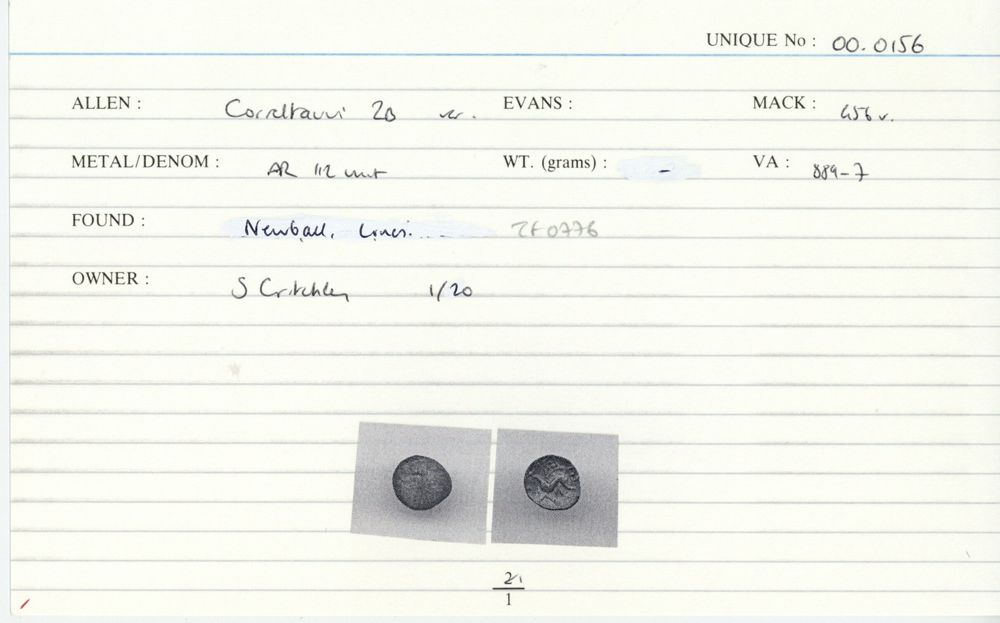 UNIQUE No : 00.0156
ALLEN : Correltauvi 2B var. EVANS : MACK : 456 v.
METAL/DENOM : AR 1/2 unit WT. (grams) : - VA : 889-7
FOUND : Newball, Lincs. TF0776
OWNER : S Critchley 1/20
2/1
1